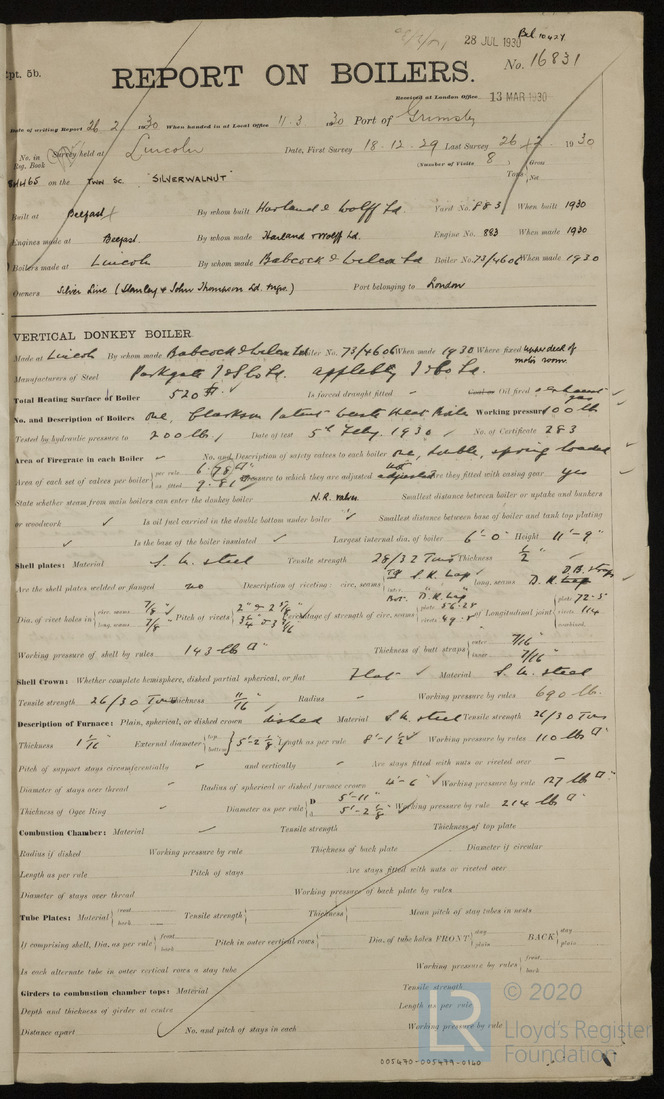 28 JUL 1930 Bel 10427
Rpt. 5b.
REPORT ON BOILERS.
No. 16831
Received at London Office 13 MAR 1930
Date of writing Report 26 2 1930 When handed in at Local Office 11.3 1930 Port of Grimsby
No. in Reg. Book Survey held at Lincoln Date, First Survey 18.12.29 Last Survey 26 2 1930
(Number of Visits 8 ) Tons Gross Net
84465 on the Twin Sc. "SILVERWALNUT"
Built at Belfast By whom built Harland & Wolff Ld. Yard No. 883 When built 1930
Engines made at Belfast. By whom made Harland & Wolff Ld. Engine No. 883 When made 1930
Boilers made at Lincoln By whom made Babcock & Wilcox Ld Boiler No. 73/4606 When made 1930
Owners Silver Line (Stanley & John Thompson Ld. Mgrs.) Port belonging to London
VERTICAL DONKEY BOILER
Made at Lincoln By whom made Babcock & Wilcox Ld Boiler No. 73/4606 When made 1930 Where fixed upper deck of motor room.
Manufacturers of Steel Parkgate I & S Co Ld. Appleby I & Co Ld.
Total Heating Surface of Boiler 520 Is forced draught fitted ✓ Coal or Oil fired exhaust gas
No. and Description of Boilers one, Clarkson Patent Waste Heat Boiler Working pressure 100 lb
Tested by hydraulic pressure to 200 lb Date of test 5th Feby. 1930 No. of Certificate 283
Area of Firegrate in each Boiler ✓ No. and Description of safety valves to each boiler one, double, spring loaded
Area of each set of valves per boiler per rule 6.78 as fitted 9.81 Pressure to which they are adjusted Are they fitted with easing gear yes
State whether steam from main boilers can enter the donkey boiler N.R. valve. Smallest distance between boiler or uptake and bunkers
or woodwork ✓ Is oil fuel carried in the double bottom under boiler ✓ Smallest distance between base of boiler and tank top plating
✓ Is the base of the boiler insulated ✓ Largest internal dia. of boiler 6'-0" Height 11'-9"
Shell plates: Material S. M. steel Tensile strength 28/32 Tons Thickness 1/2"
Are the shell plates welded or flanged no Description of riveting: circ. seams Top S. R. Lap Bot. D. R. Lap long. seams D. R. D.B. straps
Dia. of rivet holes in circ. seams 7/8 long. seams 7/8 Pitch of rivets Percentage of strength of circ. seams plate 56.28 rivets 49.8 of Longitudinal joint plate 72.5 rivets 114 combined
Working pressure of shell by rules 143 lb Thickness of butt straps outer 7/16 inner 7/16
Shell Crown: Whether complete hemisphere, dished partial spherical, or flat Flat Material S. M. steel
Tensile strength 26/30 Tons Thickness 11/16" Radius ✓ Working pressure by rules 690 lb.
Description of Furnace: Plain, spherical, or dished crown dished Material S. M. steel Tensile strength 26/30 Tons
Thickness 1 1/16 External diameter top bottom 5'-2 1/8 Length as per rule 8'-1 1/2 Working pressure by rules 110 lb
Pitch of support stays circumferentially ✓ and vertically ✓ Are stays fitted with nuts or riveted over
Diameter of stays over thread ✓ Radius of spherical or dished furnace crown 4'-6" Working pressure by rule 127 lb
Thickness of Ogee Ring ✓ Diameter as per rule D 5'-11" d 5'-2 1/8 Working pressure by rule 214 lb
Combustion Chamber: Material ✓ Tensile strength Thickness of top plate
Radius if dished Working pressure by rule Thickness of back plate Diameter if circular
Length as per rule Pitch of stays Are stays fitted with nuts or riveted over
Diameter of stays over thread Working pressure of back plate by rules
Tube Plates: Material front back Tensile strength Thickness Mean pitch of stay tubes in nests
If comprising shell, Dia. as per rule front back Pitch in outer vertical rows Dia. of tube holes FRONT stay plain BACK stay plain
Is each alternate tube in outer vertical rows a stay tube Working pressure by rules front back
Girders to combustion chamber tops: Material Tensile strength
Depth and thickness of girder at centre Length as per rule
Distance apart No. and pitch of stays in each Working pressure by rule
© 2020
Lloyd's Register
Foundation
005470-005479-0160